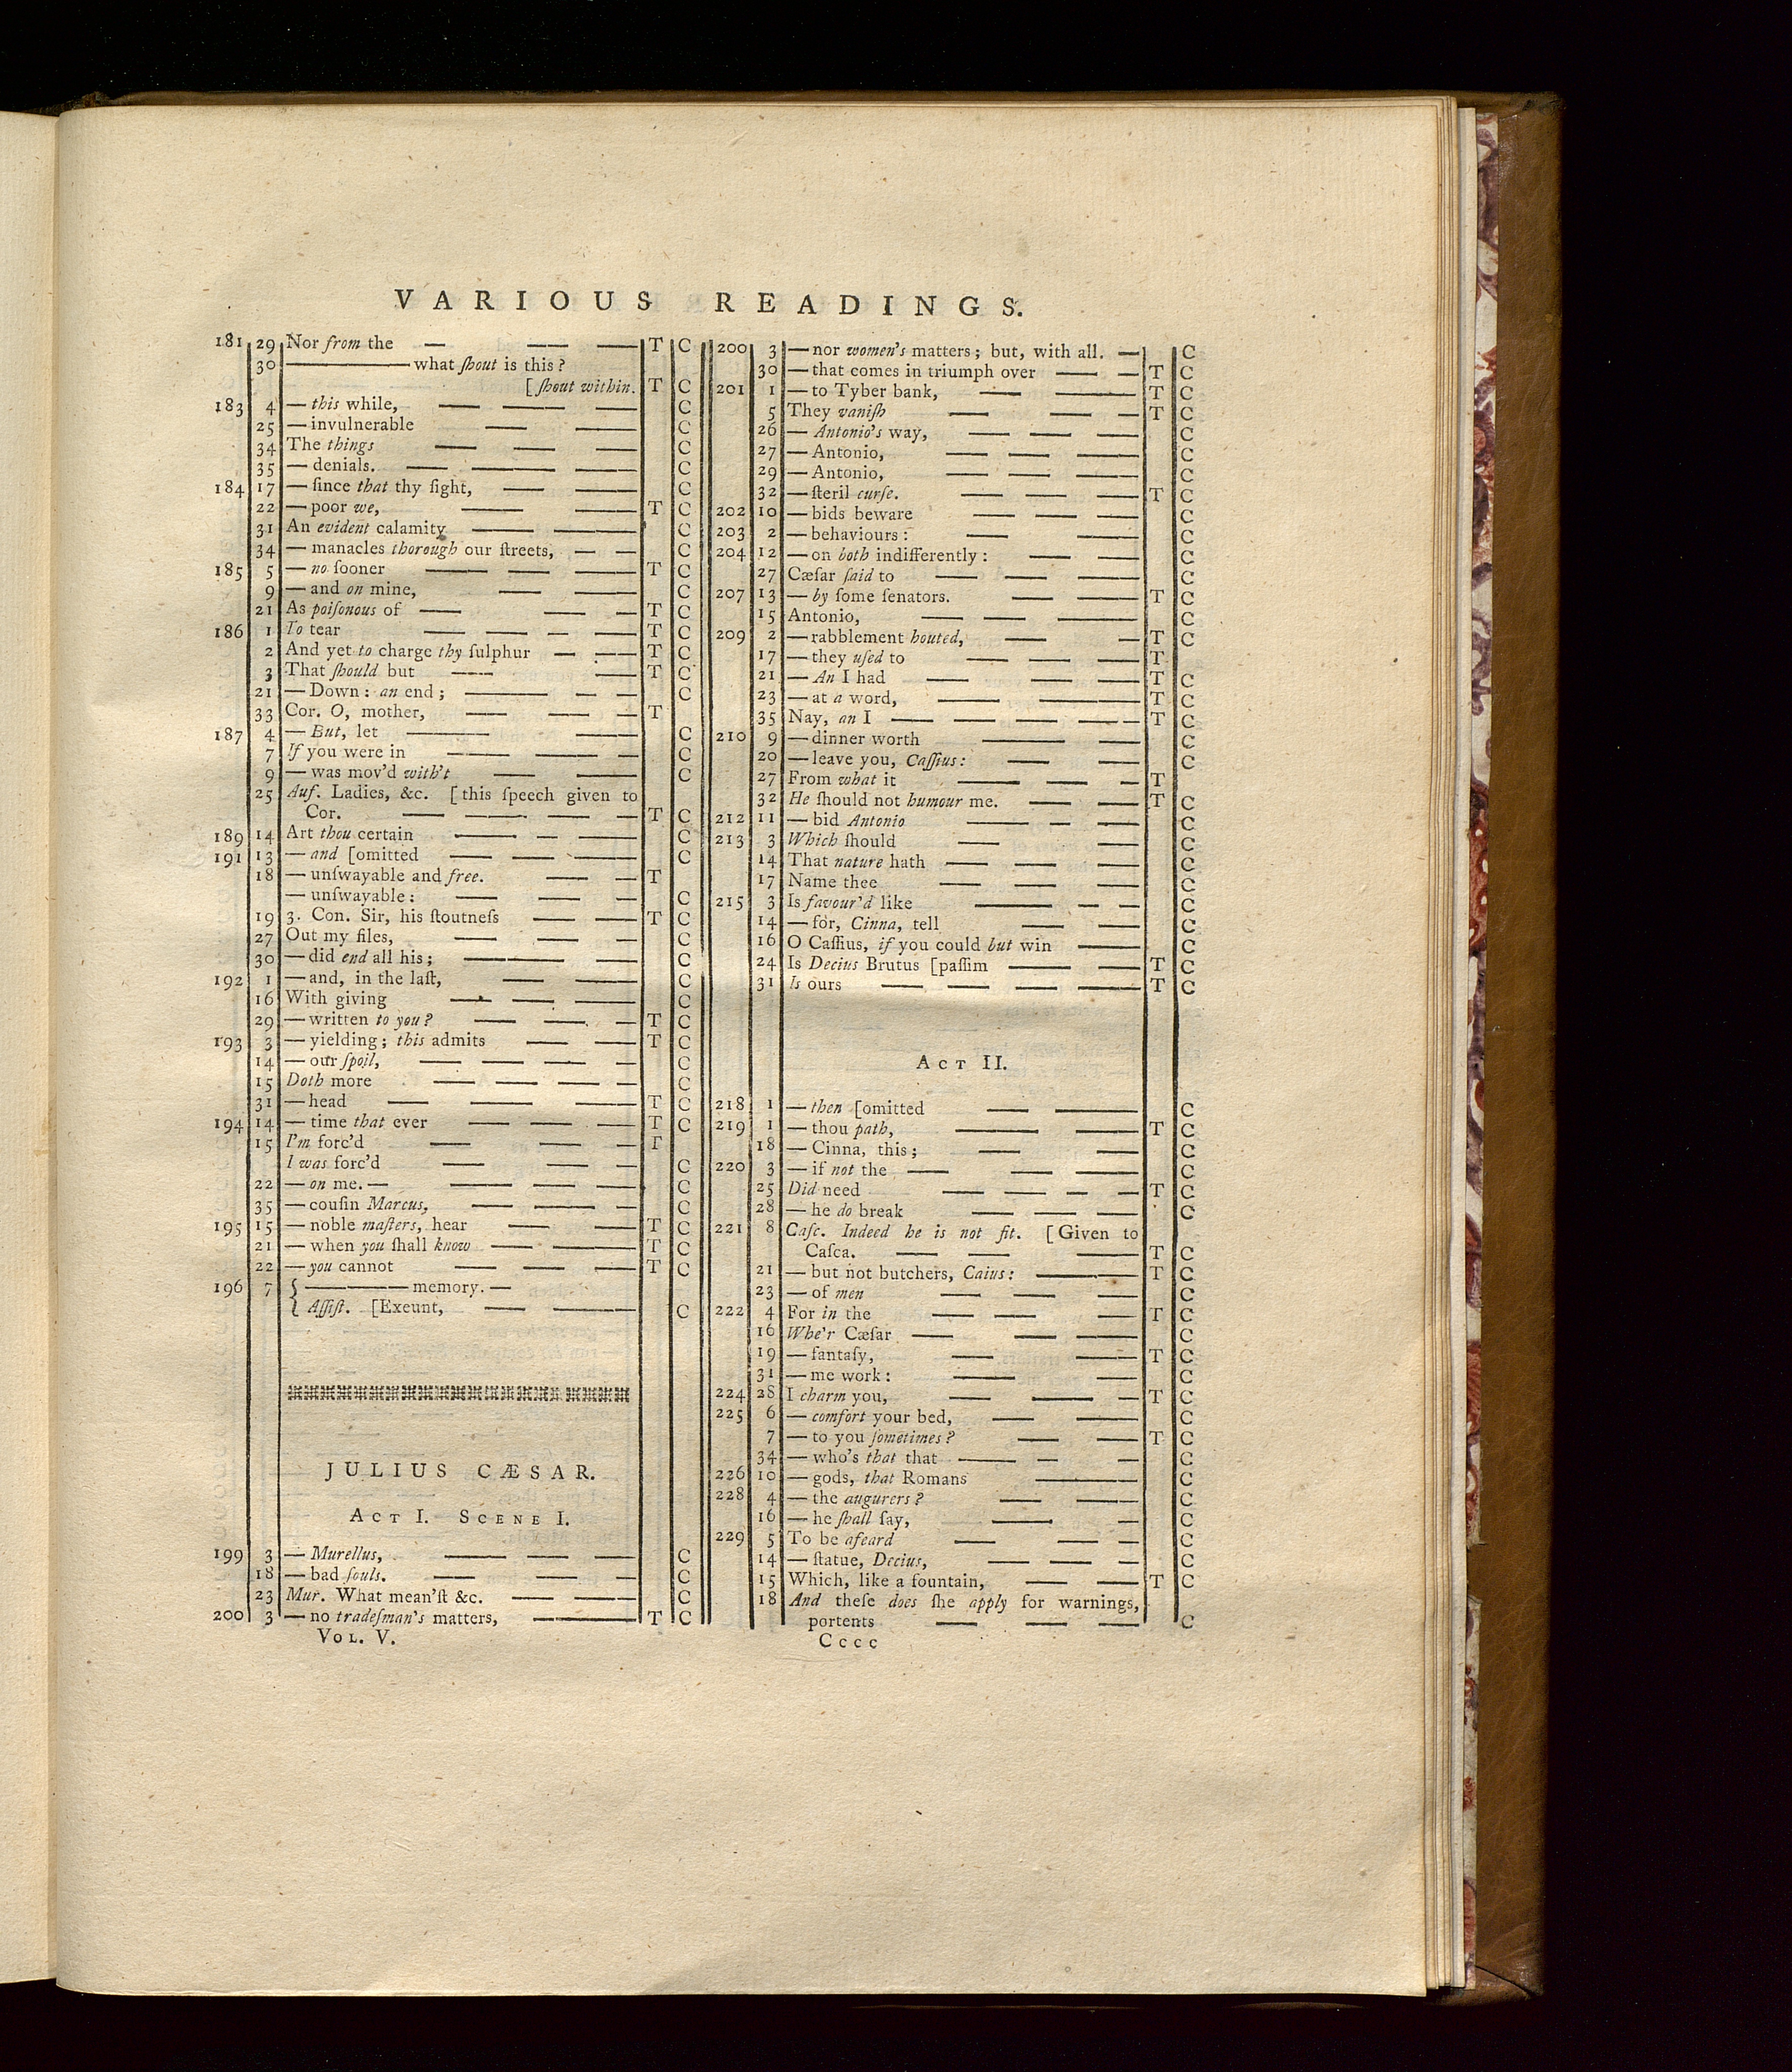 VARIOUS READINGS.
181 29 Nor from the — — — T C
30 ——— what ſhout is this?
[ſhout within. T C
183 4 — this while, — — — C
25 — invulnerable — — C
34 The things — — — C
35 — denials. — — — C
184 17 — ſince that thy ſight, — — C
22 — poor we, — — T C
31 An evident calamity — — C
34 — manacles thorough our ſtreets, — — C
185 5 — no ſooner — — — T C
9 — and on mine, — — C
21 As poiſonous of — — — T C
186 1 To tear — — — — T C
2 And yet to charge thy ſulphur — — T C
3 That ſhould but — — T C
21 — Down: an end; — — — C
33 Cor. O, mother, — — — T
187 4 — But, let — — C
7 If you were in — — — C
9 — was mov'd with't — — C
25 Auf. Ladies, &c. [this ſpeech given to
Cor. — — — — T C
189 14 Art thou certain — — — C
191 13 — and [omitted — — — C
18 — unſwayable and free. — — T
— unſwayable: — — — C
19 3. Con. Sir, his ſtoutneſs — — T C
27 Out my files, — — — C
30 — did end all his; — — — C
192 1 — and, in the laſt, — — C
16 With giving — — — C
29 — written to you? — — — T C
193 3 — yielding; this admits — — T C
14 — our ſpoil, — — — — C
15 Doth more — — — — C
31 — head — — — T C
194 14 — time that ever — — — T C
15 I'm forc'd — — — T
I was forc'd — — — C
22 — on me. — — — — C
35 — couſin Marcus, — — — C
195 15 — noble maſters, hear — — T C
21 — when you ſhall know — — T C
22 — you cannot — — — T C
196 7 { ——— memory. —
{ Aſſiſt. [Exeunt, — — C
JULIUS CÆSAR.
ACT I. SCENE I.
199 3 — Murellus, — — — C
18 — bad ſouls. — — — C
23 Mur. What mean'ſt &c. — — C
200 3 — no tradeſman's matters, — T C
VOL. V.
200 3 — nor women's matters; but, with all. — C
30 — that comes in triumph over — — T C
201 1 — to Tyber bank, — — T C
5 They vaniſh — — — T C
26 — Antonio's way, — — — C
27 — Antonio, — — — C
29 — Antonio, — — — C
32 — ſteril curſe. — — — T C
202 10 — bids beware — — — C
203 2 — behaviours: — — C
204 12 — on both indifferently: — — C
27 Cæſar ſaid to — — — C
207 13 — by ſome ſenators. — — T C
15 Antonio, — — — C
209 2 — rabblement houted, — — T C
17 — they uſed to — — — T
21 — An I had — — — T C
23 — at a word, — — T C
35 Nay, an I — — — — — T C
210 9 — dinner worth — — C
20 — leave you, Caſſius: — — C
27 From what it — — — T
32 He ſhould not humour me. — — T C
212 11 — bid Antonio — — — C
213 3 Which ſhould — — C
14 That nature hath — — — C
17 Name thee — — — C
215 3 Is favour'd like — — — C
14 — for, Cinna, tell — — C
16 O Caſſius, if you could but win — C
24 Is Decius Brutus [paſſim — — T C
31 Is ours — — — — T C
ACT II.
218 1 — then [omitted — — C
219 1 — thou path, — — T C
18 — Cinna, this; — — C
220 3 — if not the — — — C
25 Did need — — — — T C
28 — he do break — — — C
221 8 Caſc. Indeed he is not fit. [Given to
Caſca. — — — T C
21 — but not butchers, Caius: — — T C
23 — of men — — — C
222 4 For in the — — — T C
16 Whe'r Cæſar — — — C
19 — fantaſy, — — T C
31 — me work: — — C
224 28 I charm you, — — — T C
225 6 — comfort your bed, — — — C
7 — to you ſometimes? — — T C
34 — who's that that — — — C
226 10 — gods, that Romans — C
228 4 — the augurers? — — C
16 — he ſhall ſay, — — C
229 5 To be afeard — — — C
14 — ſtatue, Decius, — — — C
15 Which, like a fountain, — — T C
18 And theſe does ſhe apply for warnings,
portents — — — C
Cccc